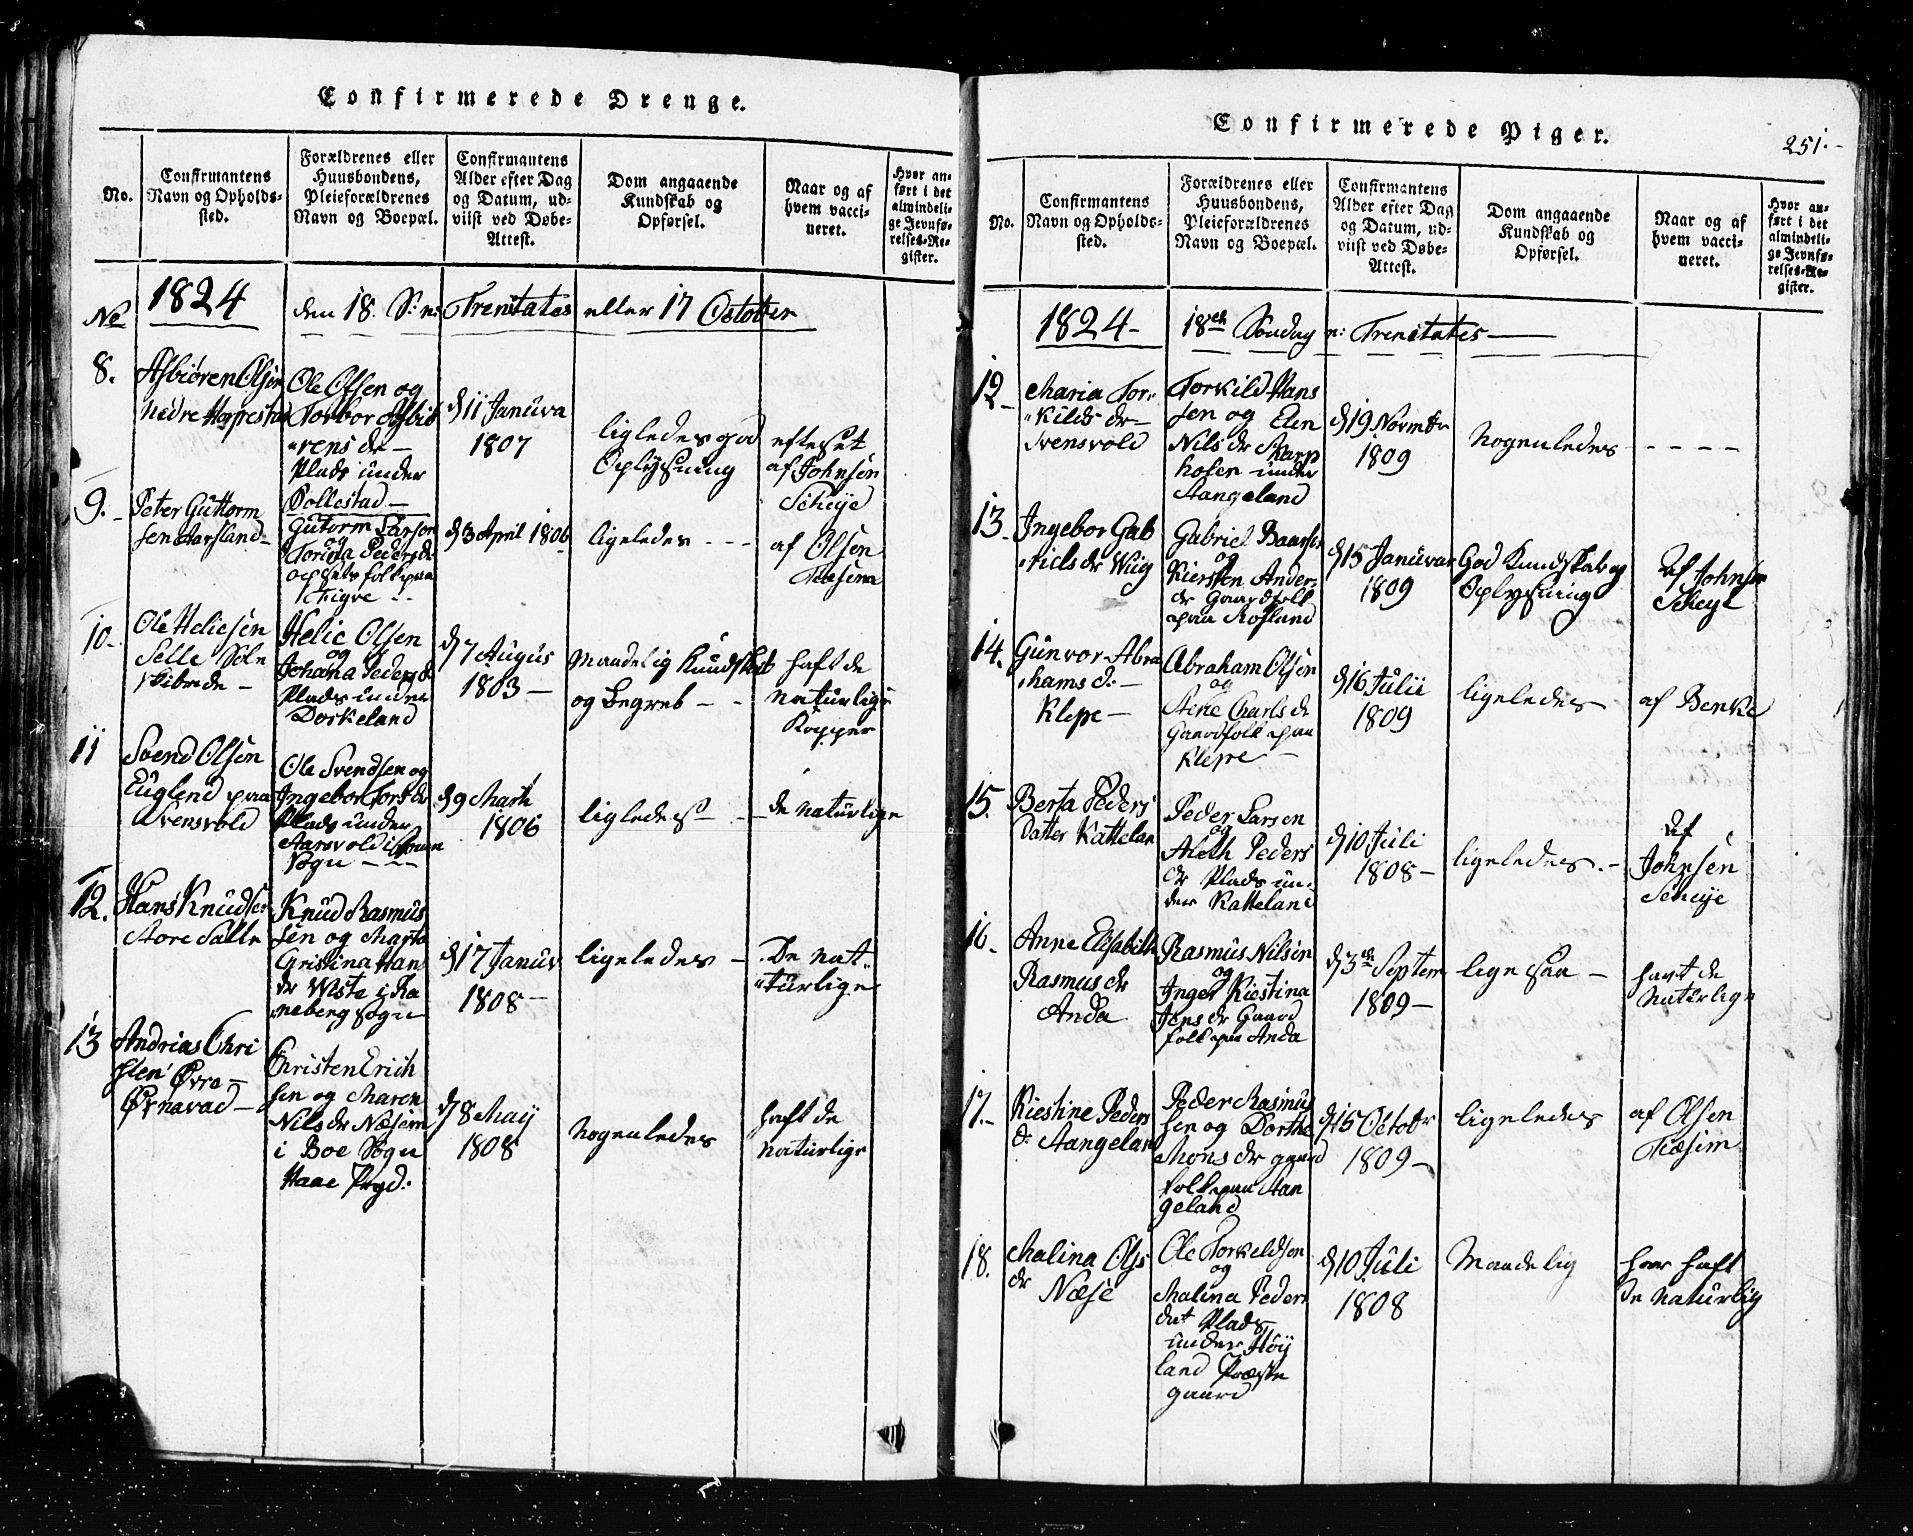 Confirmerede Drenge.
No.
Confirmantens
Navn og Opholds-
sted.
Forældrenes eller
Huusbondens,
Pleieforældrenes
Navn og Boepæl.
Confirmantens
Alder efter Dag
og Datum, ud-
viist ved Døbe-
Attest.
Dom angaaende
Kundskab og
Opførsel.
Naar og af
hvem vacci-
neret.
Hvor an-
ført i det
almindeli-
ge Jevnfø-
relses-Re-
gister.
No 1824 den 18. S: n: Trenitatis eller 17 October
8.
Asbiøren Olsen
Nedre Hoprestad
Ole Olsen og
Torbor Asbiö
"rens dr
Plads under
Pollestad
d 11 Januva
1807
ligledes god
Oplysning
efteset
af Johnsen
Scheye
9.
Peter Guttorm
sen Aarsland
Gutorm Larson
og
Torina Peders d
opsids folk paa
Figve
d 3 April 1806
ligeledes - - -
af Olsen
Tiæsem
10.
Ole Heliesen
Selle Sole
skibrede
Helie Olsen
og
Johana Peders d
Plads under
Dorkeland
d 7 Augus
1803
Maadelig Kundskab
og Begreb
haft de
naturlige
Kopper
11
Svend Olsen
Euglend paa
Svensvold
Ole Svendsen og
Ingebor Tors dr
Plads under
Aarsvold i
Sogn
d 9 Marti
1806
ligledes
de naturlige
12.
Hans Knudsen
Store Salte
Knud Rasmus
sen og Marta
Cristina Han
dr Wiste i Ra
neberg sogn
d 17 Januv
1808
ligeledes
De nat
"turlige
13
Andrias Chri
sten' Øvre
Ørnavad
Christen Erich
sen og Maren
Nils dr Næsem
i Boe Sogn
Haae Prgd:
d 8 Maij
1808
Nogenledes
haft de
naturlige
Confirmerede Piger.
251.
No.
Confirmantens
Navn og Opholds-
sted.
Forældrenes eller
Huusbondens,
Pleieforældrenes
Navn og Boepæl.
Confirmantens
Alder efter Dag
og Datum, ud-
viist ved Døbe-
Attest.
Dom angaaende
Kundskab og
Opførsel.
Naar og af
hvem vacci-
neret.
Hvor an-
ført i det
almindeli-
ge Jevnfø-
relses-Re-
gister.
1824 18en Søndag n: Trenitatis
12
Maria Tor
"kilds dr
Svensvold
Torkild Hans
sen og Elen
Nils dr Skarp
holen under
Stangeland
d 19 Novmbr
1809
Nogenledes
- - - -
13
Ingebor Gab
riels dr Wiig
Gabriel Baarsen
og
Kiersten Anders
dr Gaardfolk
paa Rosland
d 15 Januvar
1809
God Kundskab og
Oplysning
af Johnsen
Scheye
14.
Gunvor Abra
hams d:
Klepe
Abraham Olsen
og
Stine Charls d
Gaardfolk paa
Klepe
d 16 Julii
1809
ligeledes
af Benke
15.
Berta Peders
Datter Kattelan
Peder Larsen
og
Aleth Peders
dr Plads un-
der Katteland
d 10 Juli
1808
ligeledes
af
Johnsen
Scheije
16
Anne Elisabeth
Rasmus dr
Anda
Rasmus Nilsen
og
Inger Kiestina
Jens dr Gaard
folk paa Anda
d 3en Septem
1809
lige saa
havt de
naturlige
17.
Kiestine Peders
d: Stangelan
Peder Rasmus
sen og Dorthe
Mons dr gaard
folk paa Stan
geland
d 15 Octobr
1809
ligeledes
af Olsen
Tiæsem
18.
Malina Ols
dr
Næse
Ole Torkeldsen
og
Malina Peders
dat Plads
under Høij
land Præste
gaard
d 10 Juli
1808
Maadelig
har haft
de naturlig